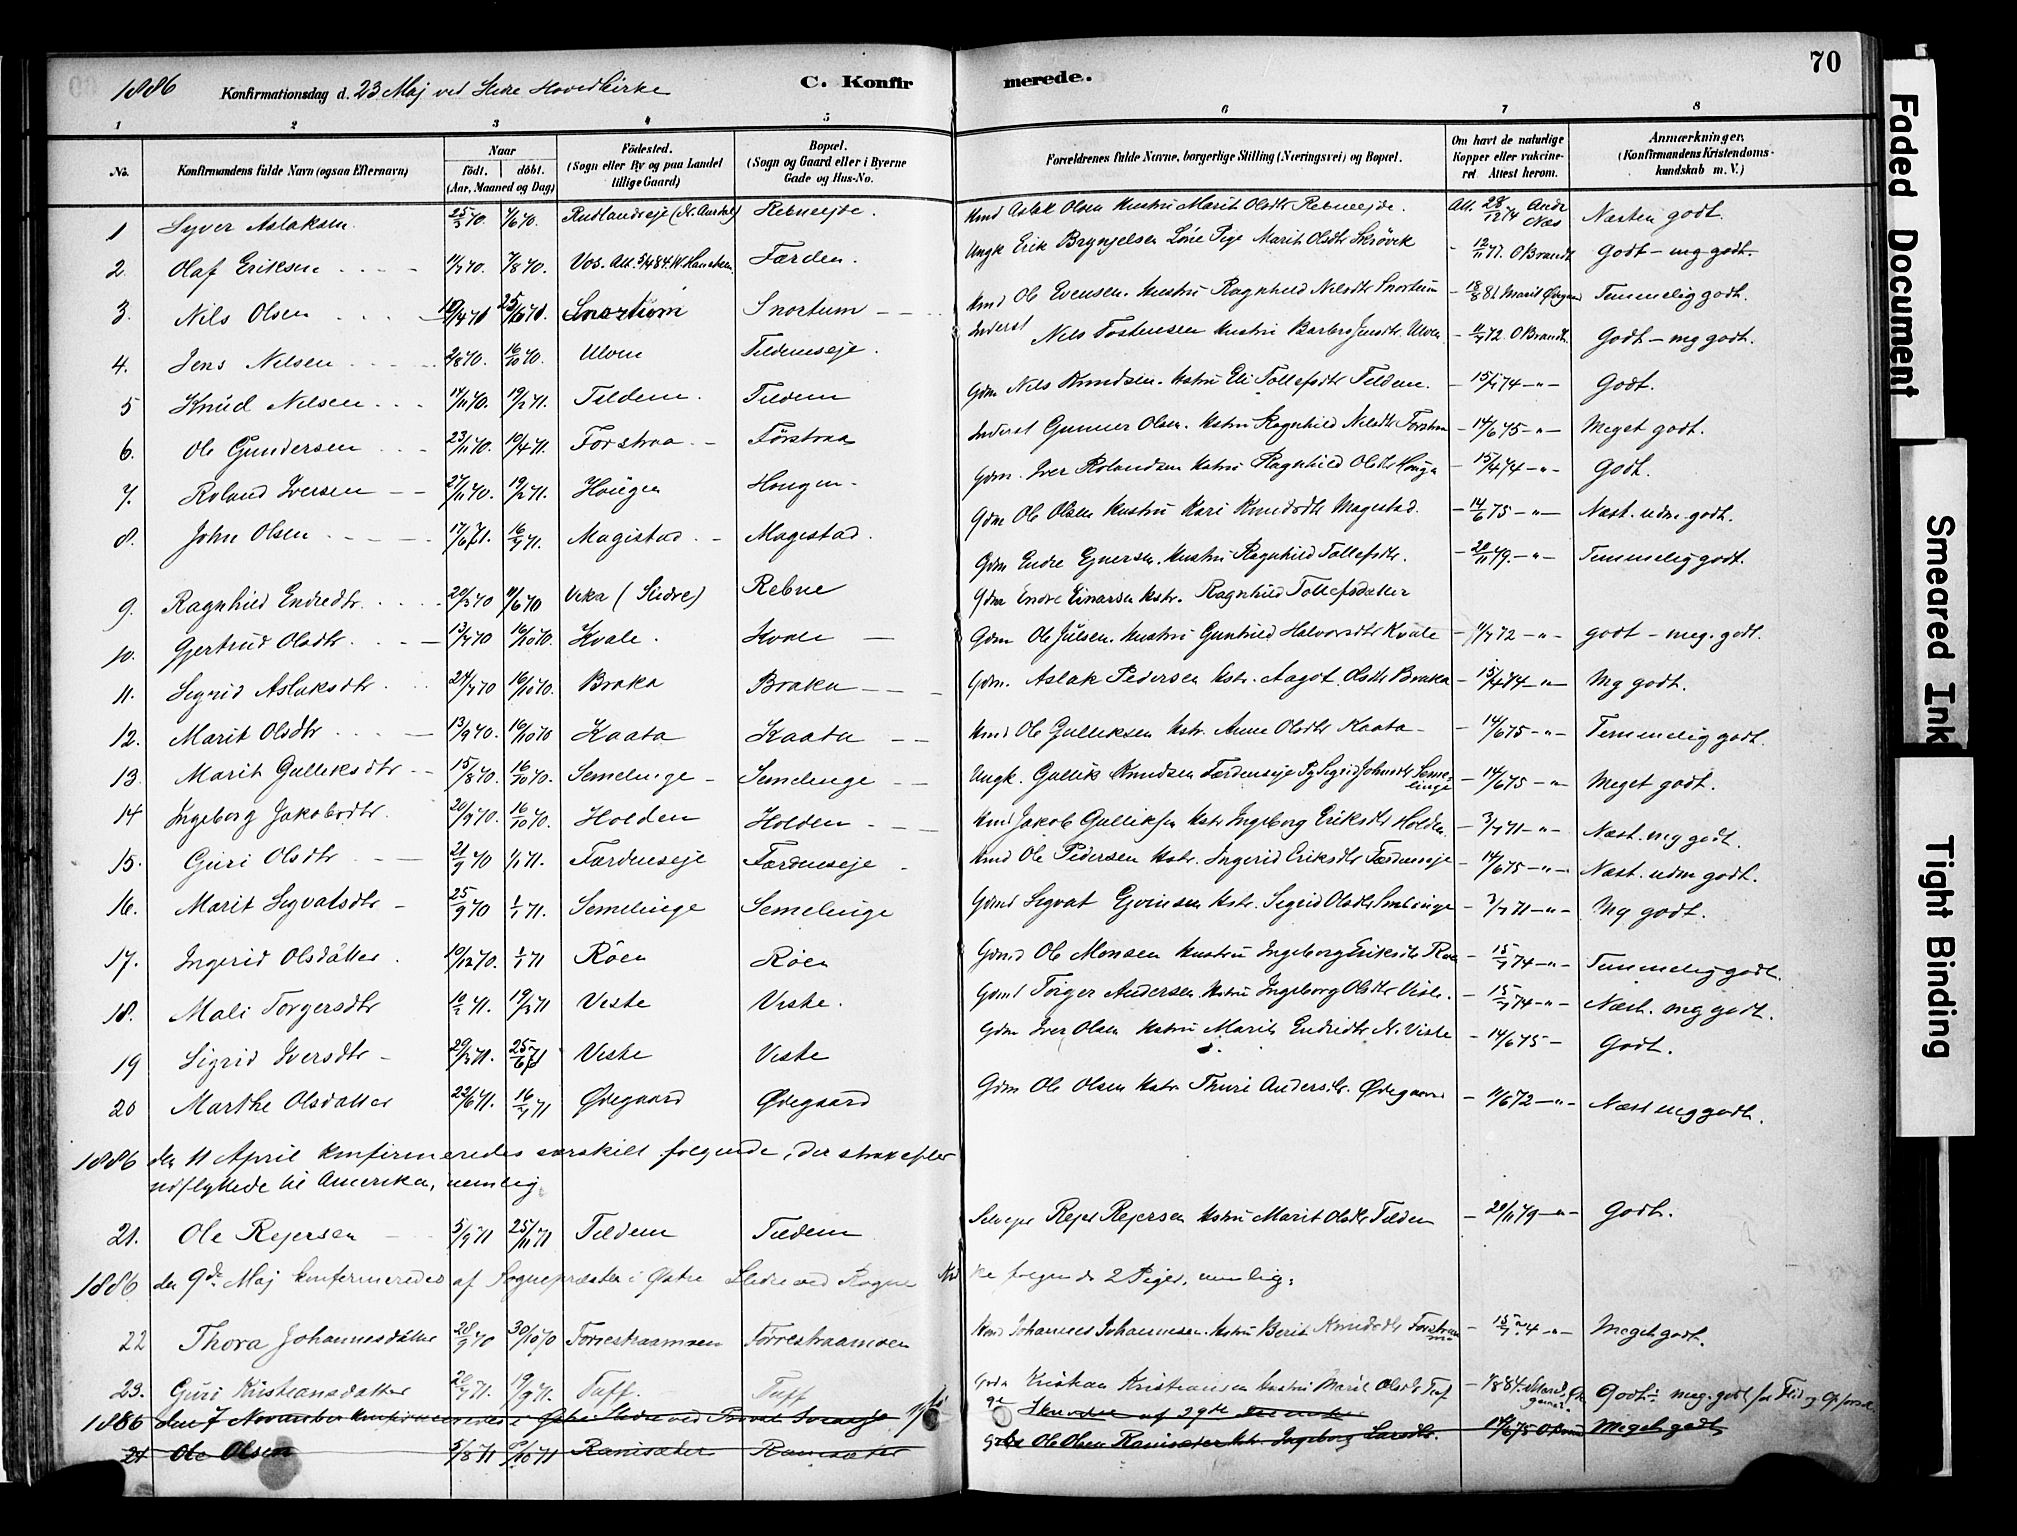 70
1886 Konfirmationsdag d. 23 Maj ved Slidre Hovedkirke C. Konfirmerede.
1 2 3 4 5 6 7 8
No. Konfirmandens fulde Navn (ogsaa Efternavn) Naar født. døbt. (Aar, Maaned og Dag) Fødested. (Sogn eller By og paa Landet tillige Gaard) Bopæl. (Sogn og Gaard eller i Byerne Gade og Hus-No. Forældrenes fulde Navne, borgerlige Stilling (Næringsvei) og Bopæl. Om havt de naturlige Kopper eller vaccineret. Attest herom. Anmærkninger. (Konfirmandens Kristendomskundskab m. V.)
1 Syver Aslaksen 25/3 70. Rudlandseje (N. Aurdal) Rebneejde. Hmd Aslak Olsen Hustru Marit Olsdtr Rebneejde. Att. 28/12 74 Andr Næs Næsten godt.
2. Olaf Eriksen 7/8 70. Vos. Færden. Ungk Erik Brynjelsen Løse Pige Marit Olsdtr Skrøvek - 12/11 77. O Brandt Godt - mg godt.
3. Nils Olsen Snortum Snortum Hmd Ole Evensen. Hustru Ragnhild Nilsdtr Snortum - 18/8 81 Marit Øvegaard Temmelig godt.
4. Jens Nilsen 2/8 70. 16/10 70. Ulven Tildemseje. Inderst Nils Tostensen Hustru Barbro Jensdtr Ulven - 11/7 72. O Brandt. Godt - mg godt.
5 Knud Nilsen 14/11 70. 19/2 71. Tildem. Tildem Gdm Nils Knudsen. Hstru Eli Tollefsdtr Tildem. - 15/7 74 -"- Godt.
6. Ole Gundersen 23/11 70. 10/4 71. Forstraa Førstraa Inderst Gunner Olsen. Hstru Ragnhild Nilsdtr Forstraa - 14/6 75 -"- Meget godt.
7. Roland Iversen 27/11 70. 19/2 71. Hougen Hougen Gdm. Iver Rolandsen Hstru Ragnhild Olsdtr Hougen - 15/7 74 -"- Godt.
8. John Olsen 17/6 71. 16/7 71. Magistad Magestad. Gdm Ole Olsen Hustru Kari Knudsdtr Magestad. - 14/6 75 -"- Næst. udm. godt.
Gdm Endre Ejnersen. Hustru Ragnhild Tollefsdtr. - 20/11 79. -"- Temmelig godt.
9. Ragnhild Endredtr. 20/3 70 Vika (Slidre) Rebne Gdm Endre Einarsen Hstr. Ragnhild Tollefsdatter
10. Gjertrud Olsdtr. 13/7 70 16/10 70. Kvale. Kvale Gdm Ole Julsen. Hustru Gunhild Halvorsdtr Kvale - 11/7 72 -"- godt - meg. godt.
11. Sigrid Aslaksdtr. 24/7 70 16/10 70. Braka Braka Gdm. Aslak Pedersen Hstr. Aagot Olsdtr Braka - 15/7 74 -"- Mg godt.
12. Marit Olsdtr 13/9 70. 16/10 70 Kaata Kaata Hmd Ole Gulliksen Hstr. Anne Olsdtr Kaata - 14/6 75 -"- Temmelig godt.
13. Marit Gulliksdtr 15/8 70. 16/10 70. Semelenge Semelenge Ungk. Gullik Knudsen Færdenseje Pg Sigrid Johnsdtr Semelenge - 14/6 75 -"- Meget godt.
14 Ingeborg Jakobsdtr. 20/9 70. 16/10 70. Holden Holden Hmd Jakob Gulliksen Hstr Ingeborg Eriksdtr Holden. - 3/7 71 -"- Næst. mg godt.
15. Guri Olsdtr 21/9 70 1/1 71. Færdenseje Færdenseje Hmd Ole Pedersen Hstr. Ingerid Eriksdtr Færdenseje - 14/6 75 -"- Næst. udm godt.
16. Marit Sygvatsdtr 25/9 70 1/1 71. Semelenge Semelenge Gdmd Sygvat Ejvinsen Hstr. Sigrid Olsdtr Semelenge - 3/7 71 -"- Mg godt.
17. Ingerid Olsdatter. 10/12 70. 1/1 71 Røen Røen Gdmd Ole Monsen Hustru Ingeborg Eriksdtr Røen - 15/7 74 -"- Temmelig godt.
18. Mali Torgersdtr 19/3 71 Viste Viste. Gdmd Torger Andersen. Hstru Ingeborg Olsdtr Viste. - 15/7 74 -"- Næst. mg godt.
19 Sigrid Iversdtr 25/6 71 Viste Viste Gdm Iver Olsen Hstru Marit Endridtr N. Viste - 14/6 75 - Godt.
20 Marthe Olsdatter 22/6 71. 16/7 71 Ødegaard Ødegaard Gdm Ole Olsen Hstr. Thuri Andersdtr. Ødegaard - 11/6 72 -"- Næst meg godt.
1886 den 11 April konfirmeredes særskilt følgende, der strax efter
udflyttede til Amerika, nemlig
21. Ole Rejersen 5/9 71 25/11 71 Tildem Tildem Selvejer Rejer Rejersen Hstru Marit Olsdtr Tildem - 20/11 79 -"- Godt.
1886 den 9de Maj konfirmeredes af Sognepræsten i Østre Slidre ved Rogne Kirke følgende 2 Piger, nemlig:
22 Thora Johannesdatter 28/9 70 30/10 70 Forrestraamoen Forrestraamoen Hmd Johannes Johannesen. Hstru Berit Knudsdtr - 15/7 74 -"- Meget godt.
23. Guri Kristiansdatter 17/9 71. Tuff. Tuff Gdm Kristian Kristiansen Hustru Marit Olsdtr Tuf Godt: meg. godt for Flid og
1886 den 7 November konfirmeredes i Østre Slidre ved
24 Ole Olsen 5/8 71 Ranisæter Ranisæter Ole Olsen Ranisæter Hstr. Ingeborg Larsdtr. 14/6 75 Meget godt
Faded Document
Smeared Ink
Tight Binding